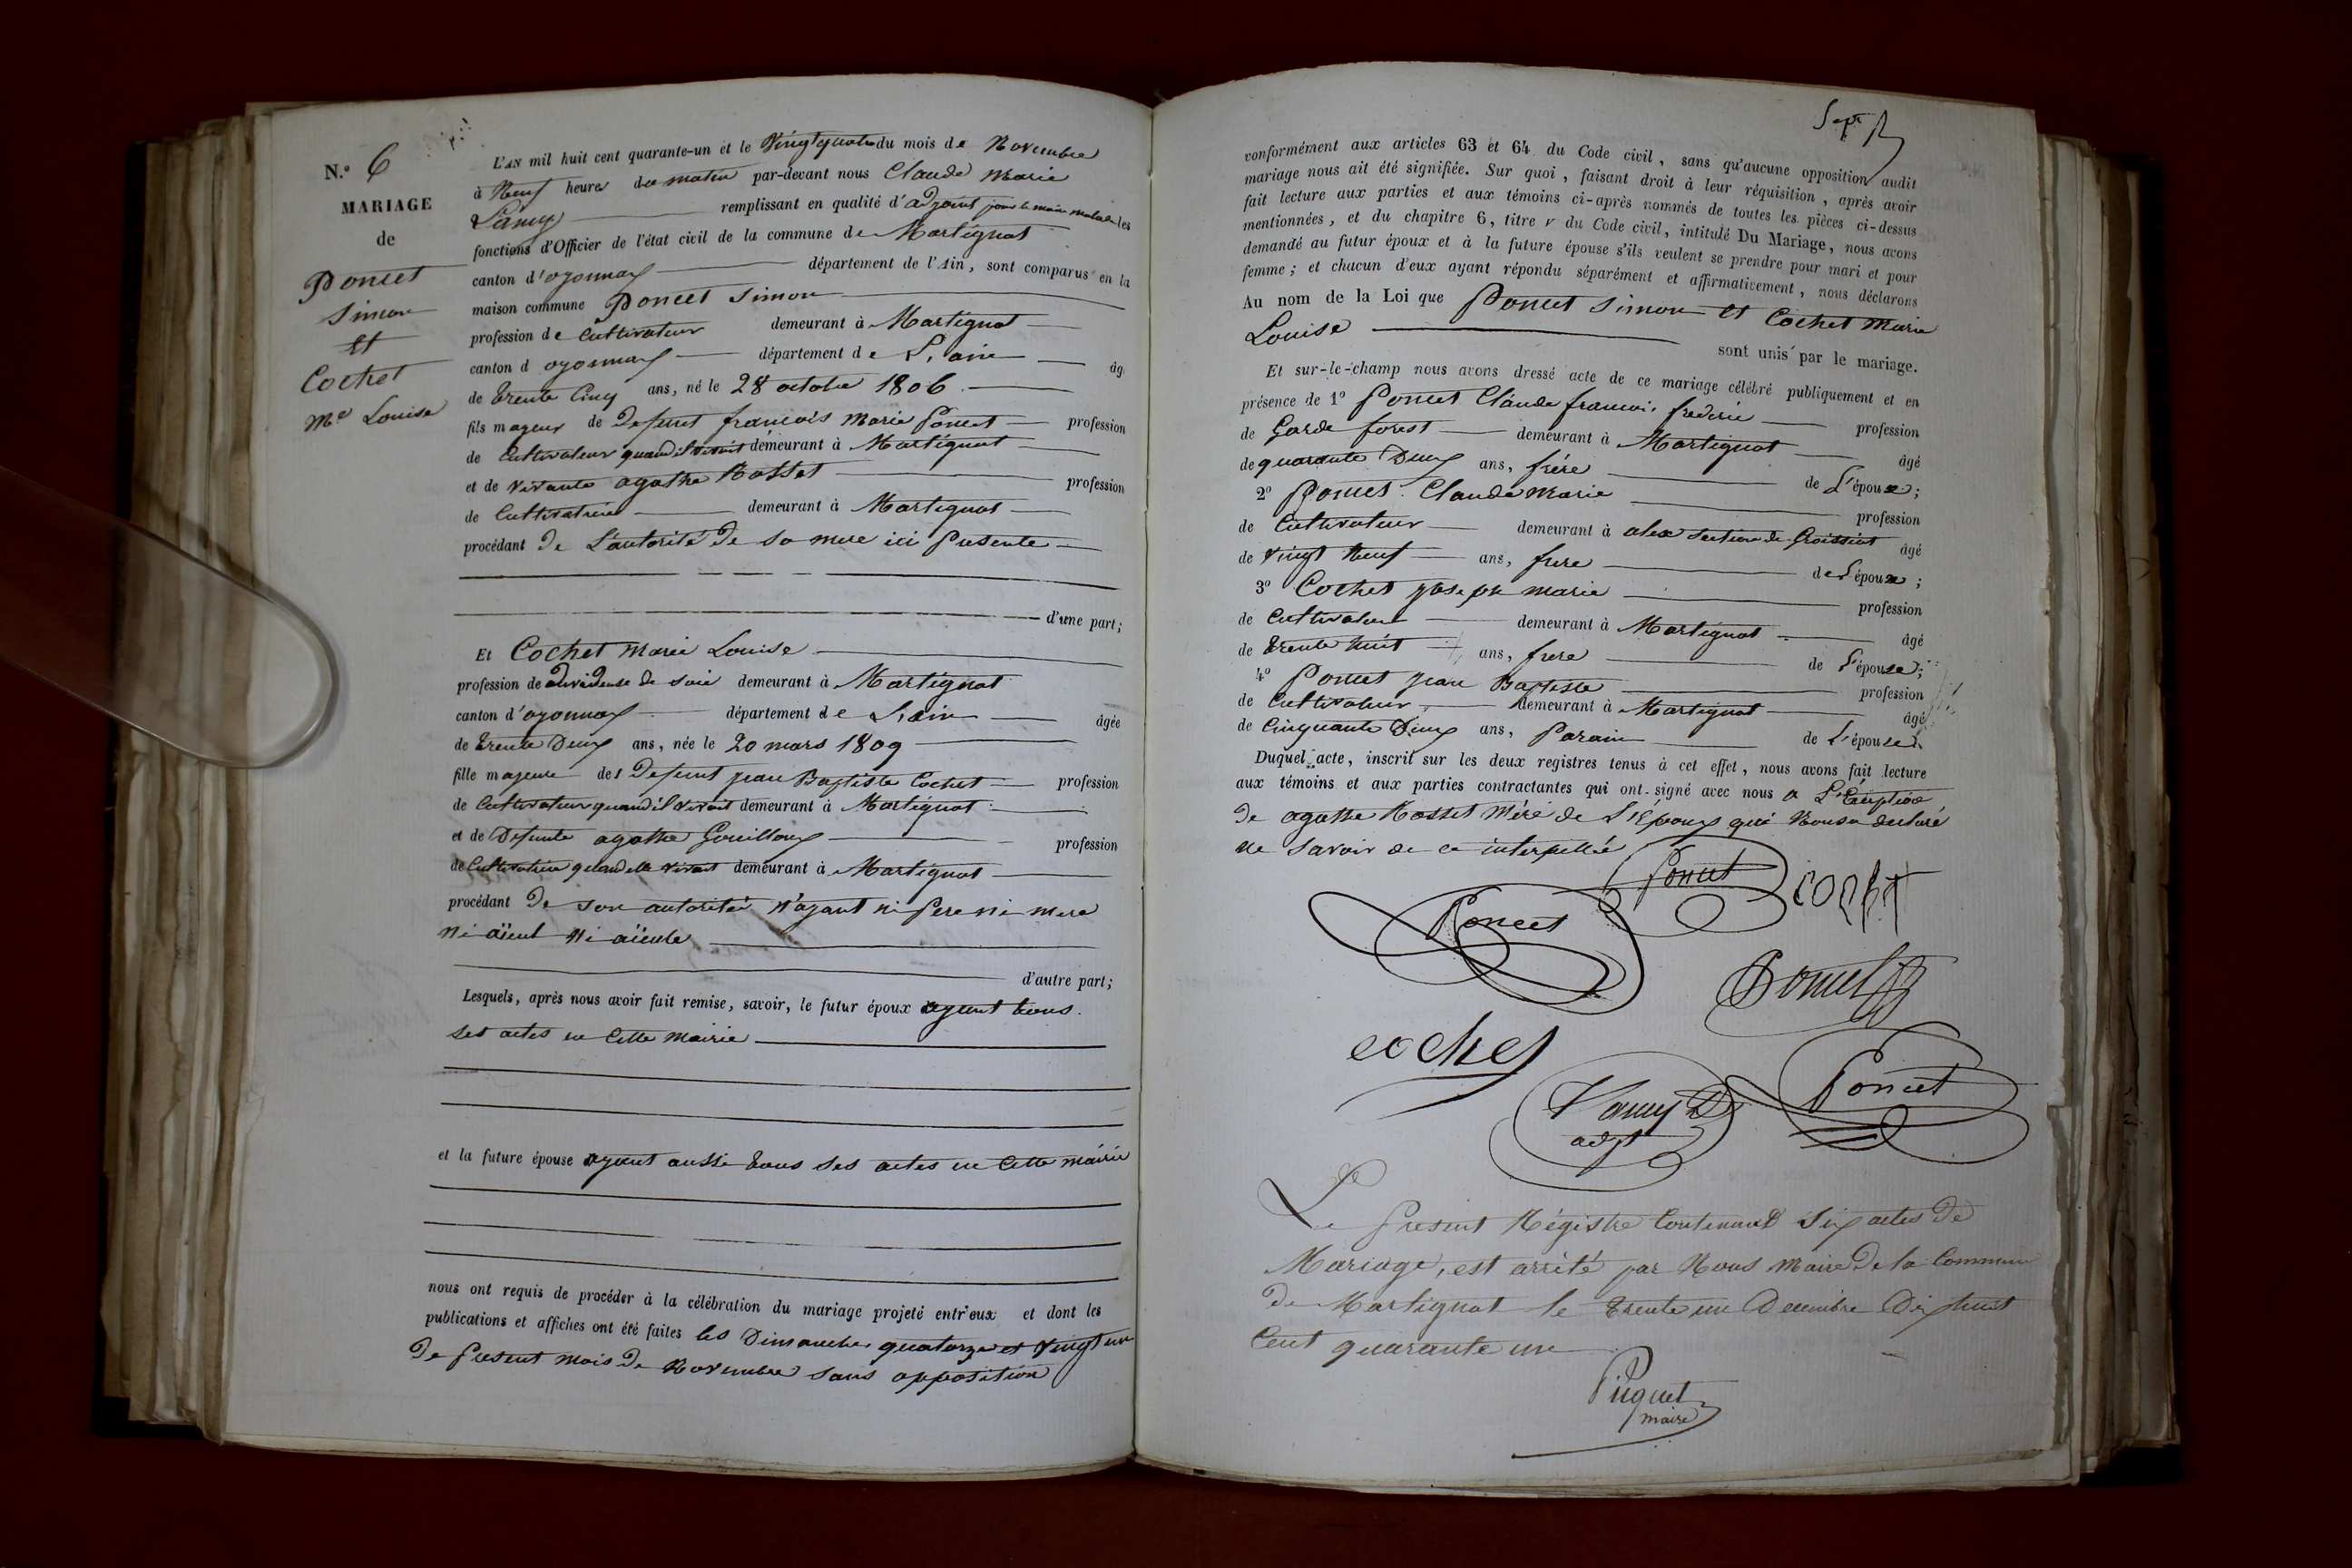 N.° 6
MARIAGE
de
Poncet
Simon
et
Cochet
Mie Louise
L'AN mil huit cent quarante-un et le Vingt quatre du mois de Novembre
à Neuf heures du matin par-devant nous Claude Marie
Lancy remplissant en qualité d'adjoint pour le maire malade les
fonctions d'Officier de l'état civil de la commune de Martignat
canton d'oyonnax département de l'Ain, sont comparus en la
maison commune Poncet Simon
profession de Cultivateur demeurant à Martignat
canton d'oyonnax département de L'ain âgé
de trente Cinq ans, né le 28 octobre 1806
fils majeur de Defunt francois Marie Poncet profession
de Cultivateur quand il vivait demeurant à Martignat
et de vivante agathe Rosset profession
de Cultivatrice demeurant à Martignat
procédant De L'autorité De sa mere ici Presente
d'une part;
Et Cochet Marie Louise
profession de devideuse de soie demeurant à Martignat
canton d'oyonnax département de L'ain âgée
de trente Deux ans, née le 20 mars 1809
fille majeure des Defunt jean Baptiste Cochet profession
de Cultivateur quand il vivait demeurant à Martignat
et de Defunte agathe Gouilloux profession
de Cultivatrice quand elle vivait demeurant à Martignat
procédant De son autorité n'ayant ni Pere ni mere
ni aïeul ni aïeule
d'autre part;
Lesquels, après nous avoir fait remise, savoir, le futur époux ayant tous
ses actes en Cette Mairie
et la future épouse ayant aussi tous ses actes en Cette mairie
nous ont requis de procéder à la célébration du mariage projeté entr'eux et dont les
publications et affiches ont été faites les Dimanches quatorze et vingt un
De Present mois De Novembre sans opposition
Sept
conformément aux articles 63 et 64 du Code civil, sans qu'aucune opposition audit
mariage nous ait été signifiée. Sur quoi, faisant droit à leur réquisition, après avoir
fait lecture aux parties et aux témoins ci-après nommés de toutes les pièces ci-dessus
mentionnées, et du chapitre 6, titre v du Code civil, intitulé Du Mariage, nous avons
demandé au futur époux et à la future épouse s'ils veulent se prendre pour mari et pour
femme; et chacun d'eux ayant répondu séparément et affirmativement, nous déclarons
Au nom de la Loi que Poncet Simon et Cochet Marie
Louise sont unis par le mariage.
Et sur-le-champ nous avons dressé acte de ce mariage célébré publiquement et en
présence de 1° Poncet Claude francois frederic profession
de Garde forest demeurant à Martignat âgé
de quarante Deux ans, frère de L'époux;
2° Poncet Claude Marie profession
de Cultivateur demeurant à alex section de Groissiat âgé
de vingt Neuf ans, frere de L'époux;
3° Cochet joseph marie profession
de Cultivateur demeurant à Martignat âgé
de trente huit ans, frere de L'épouse;
4° Poncet jean Baptiste profession
de Cultivateur demeurant à Martignat âgé
de Cinquante Deux ans, Parain de L'épouse.
Duquel acte, inscrit sur les deux registres tenus à cet effet, nous avons fait lecture
aux témoins et aux parties contractantes qui ont signé avec nous a L'Exeption
De agathe Rosset Mére de L'Epoux qui Nous a declaré
ne savoir de ce interpellé
Poncet
Poncet
Poncet
cochet
Poncet
Lancy
adjt
Le Present Régistre Contenant Six actes De
Mariage, est arrété par Nous Maire De la Commune
De Martignat le trente un Decembre Dix huit
Cent quarante un
Piquet
maire